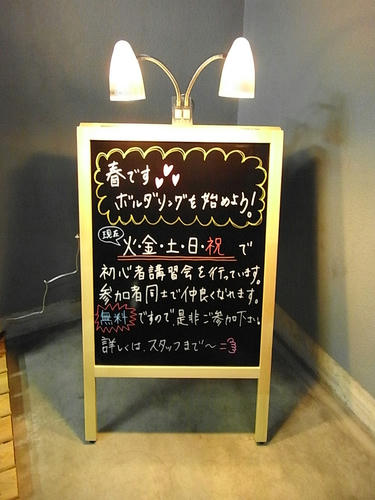 春です
ボルダリングを始めよう!
現在
火・金・土・日・祝 で
初心者講習会を行っています。
参加者同士で仲良くなれます。
無料ですので是非ご参加下さい。
詳しくは、スタッフまで〜